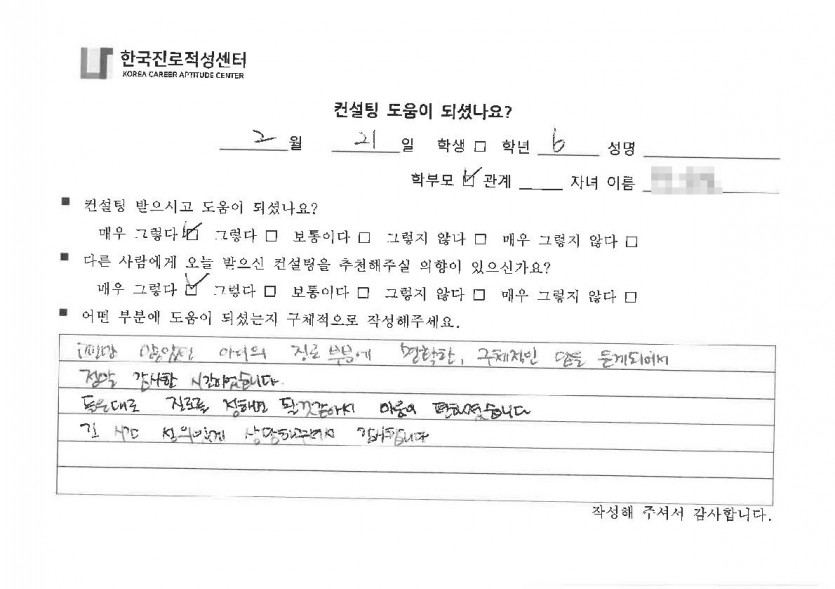 한국진로적성센터
KOREA CAREER APTITUDE CENTER
컨설팅 도움이 되셨나요?
2 월 21 일 학생 □ 학년 6 성명
학부모 ☑ 관계 자녀 이름
■ 컨설팅 받으시고 도움이 되셨나요?
매우 그렇다 ☑ 그렇다 □ 보통이다 □ 그렇지 않다 □ 매우 그렇지 않다 □
■ 다른 사람에게 오늘 받으신 컨설팅을 추천해주실 의향이 있으신가요?
매우 그렇다 ☑ 그렇다 □ 보통이다 □ 그렇지 않다 □ 매우 그렇지 않다 □
■ 어떤 부분에 도움이 되셨는지 구체적으로 작성해주세요.
아이의 진로 부분에 명확한, 구체적인 답을 듣게되어서
정말 감사한 시간이었습니다.
진로를 정해도 될것같아서 마음이 편해졌습니다
긴 시간 성의있게 상담해주셔서 감사합니다
작성해 주셔서 감사합니다.